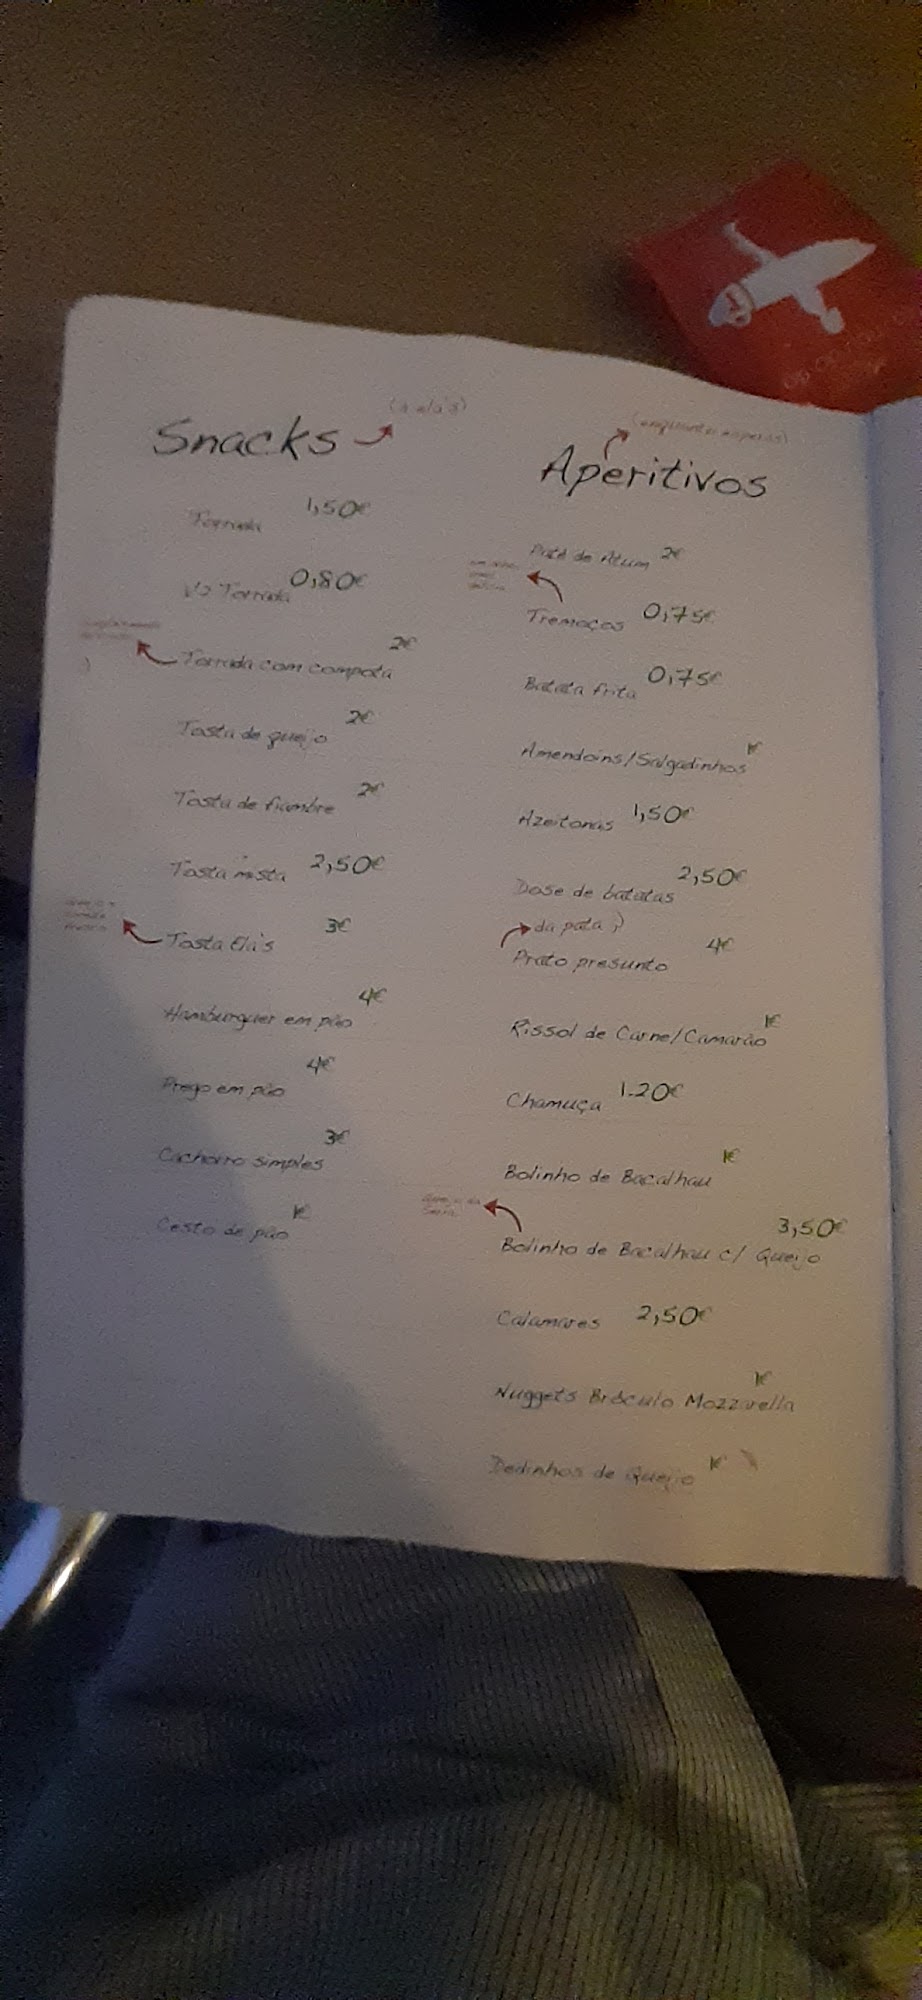 Snacks
Torrada 1,50€
1/2 Torrada 0,80€
Torrada com compota 2€
Tosta de queijo 2€
Tosta de fiambre 2€
Tosta mista 2,50€
Tosta Ela's 3€
Hamburguer em pão 4€
Prego em pão 4€
Cachorro simples 3€
Cesto de pão 1€
(enquanto esperas)
Aperitivos
Patê de Atum 2€
Tremoços 0,75€
Batata frita 0,75€
Amendoins/Salgadinhos 1€
Azeitonas 1,50€
Dose de batatas 2,50€
da pata ;)
Prato presunto 4€
Rissol de Carne/Camarão 1€
Chamuça 1.20€
Bolinho de Bacalhau 1€
Queijo da
Serra
Bolinho de Bacalhau c/ Queijo 3,50€
Calamares 2,50€
Nuggets Bróculo Mozzarella 1€
Dedinhos de Queijo 1€